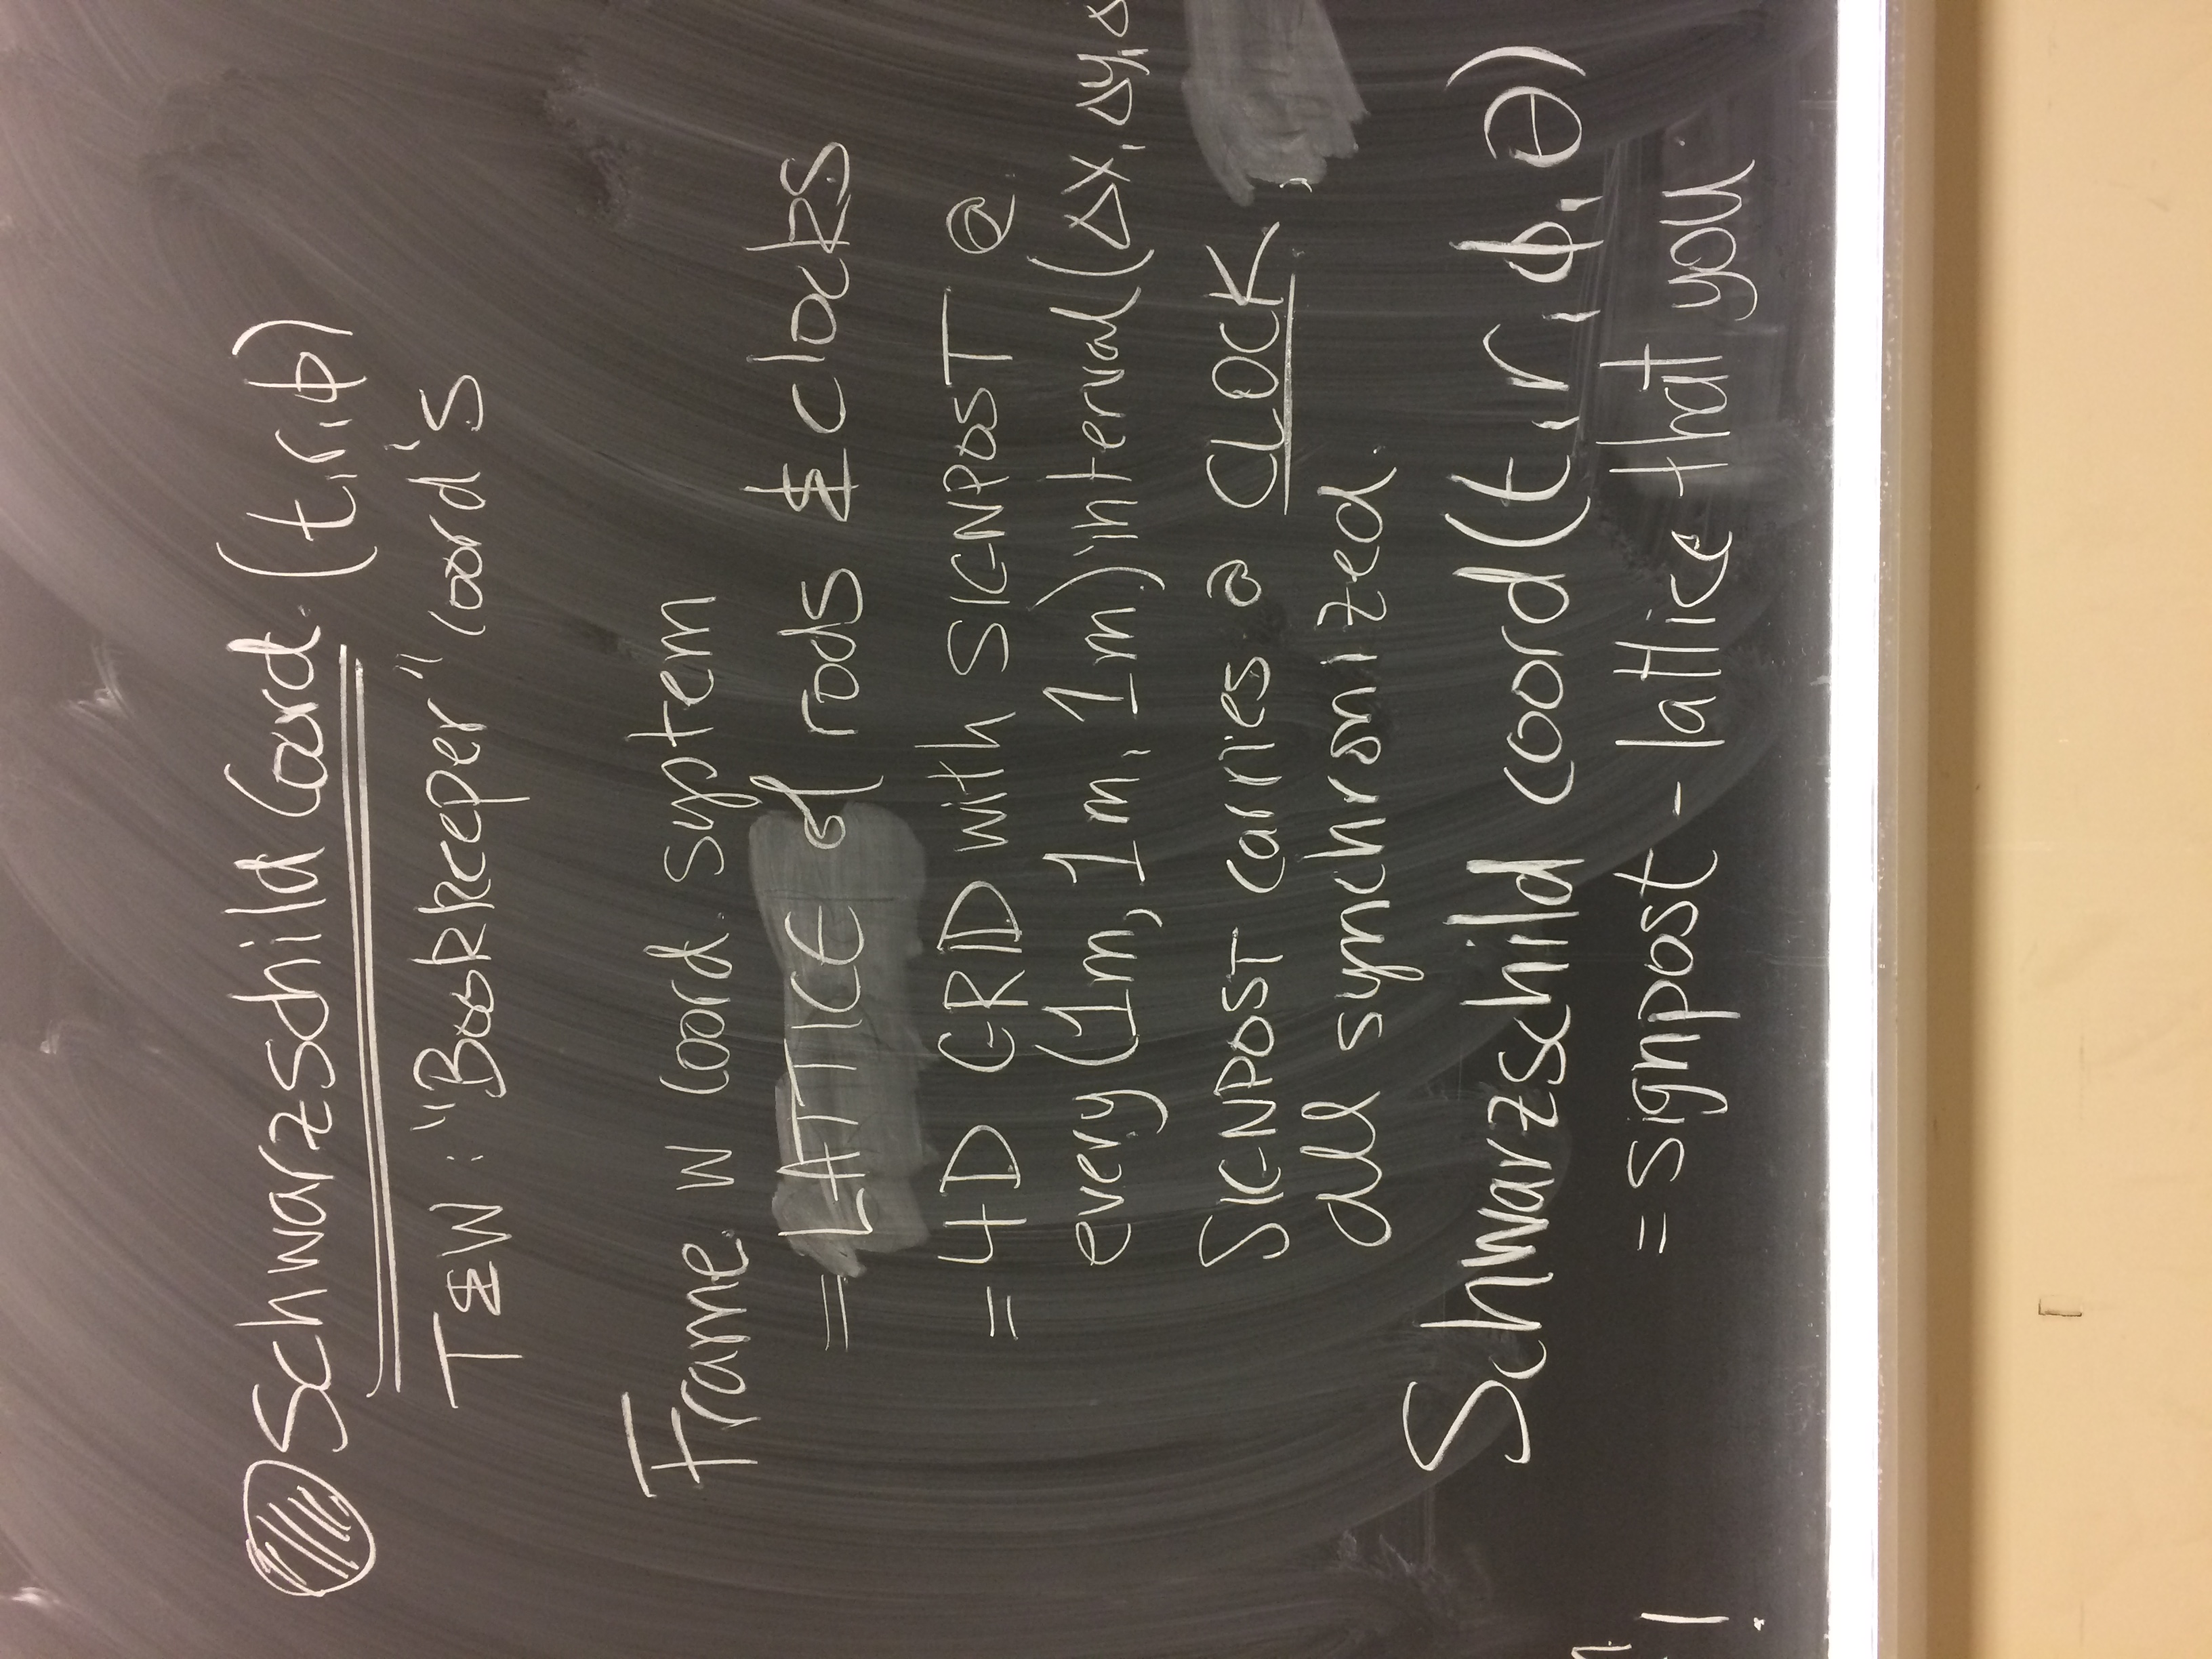 Schwarzschild Coord. (t,r,φ)
T&W: "Bookkeeper" coord's
Frame w coord. system
= LATTICE of rods & clocks
= 4D GRID with SIGNPOST @
every (1m, 1m, 1m) interval (Δx, Δy, Δ
SIGNPOST carries a CLOCK,
all synchronized.
Schwarzschild coord (t, r, φ, θ)
= signpost-lattice that you